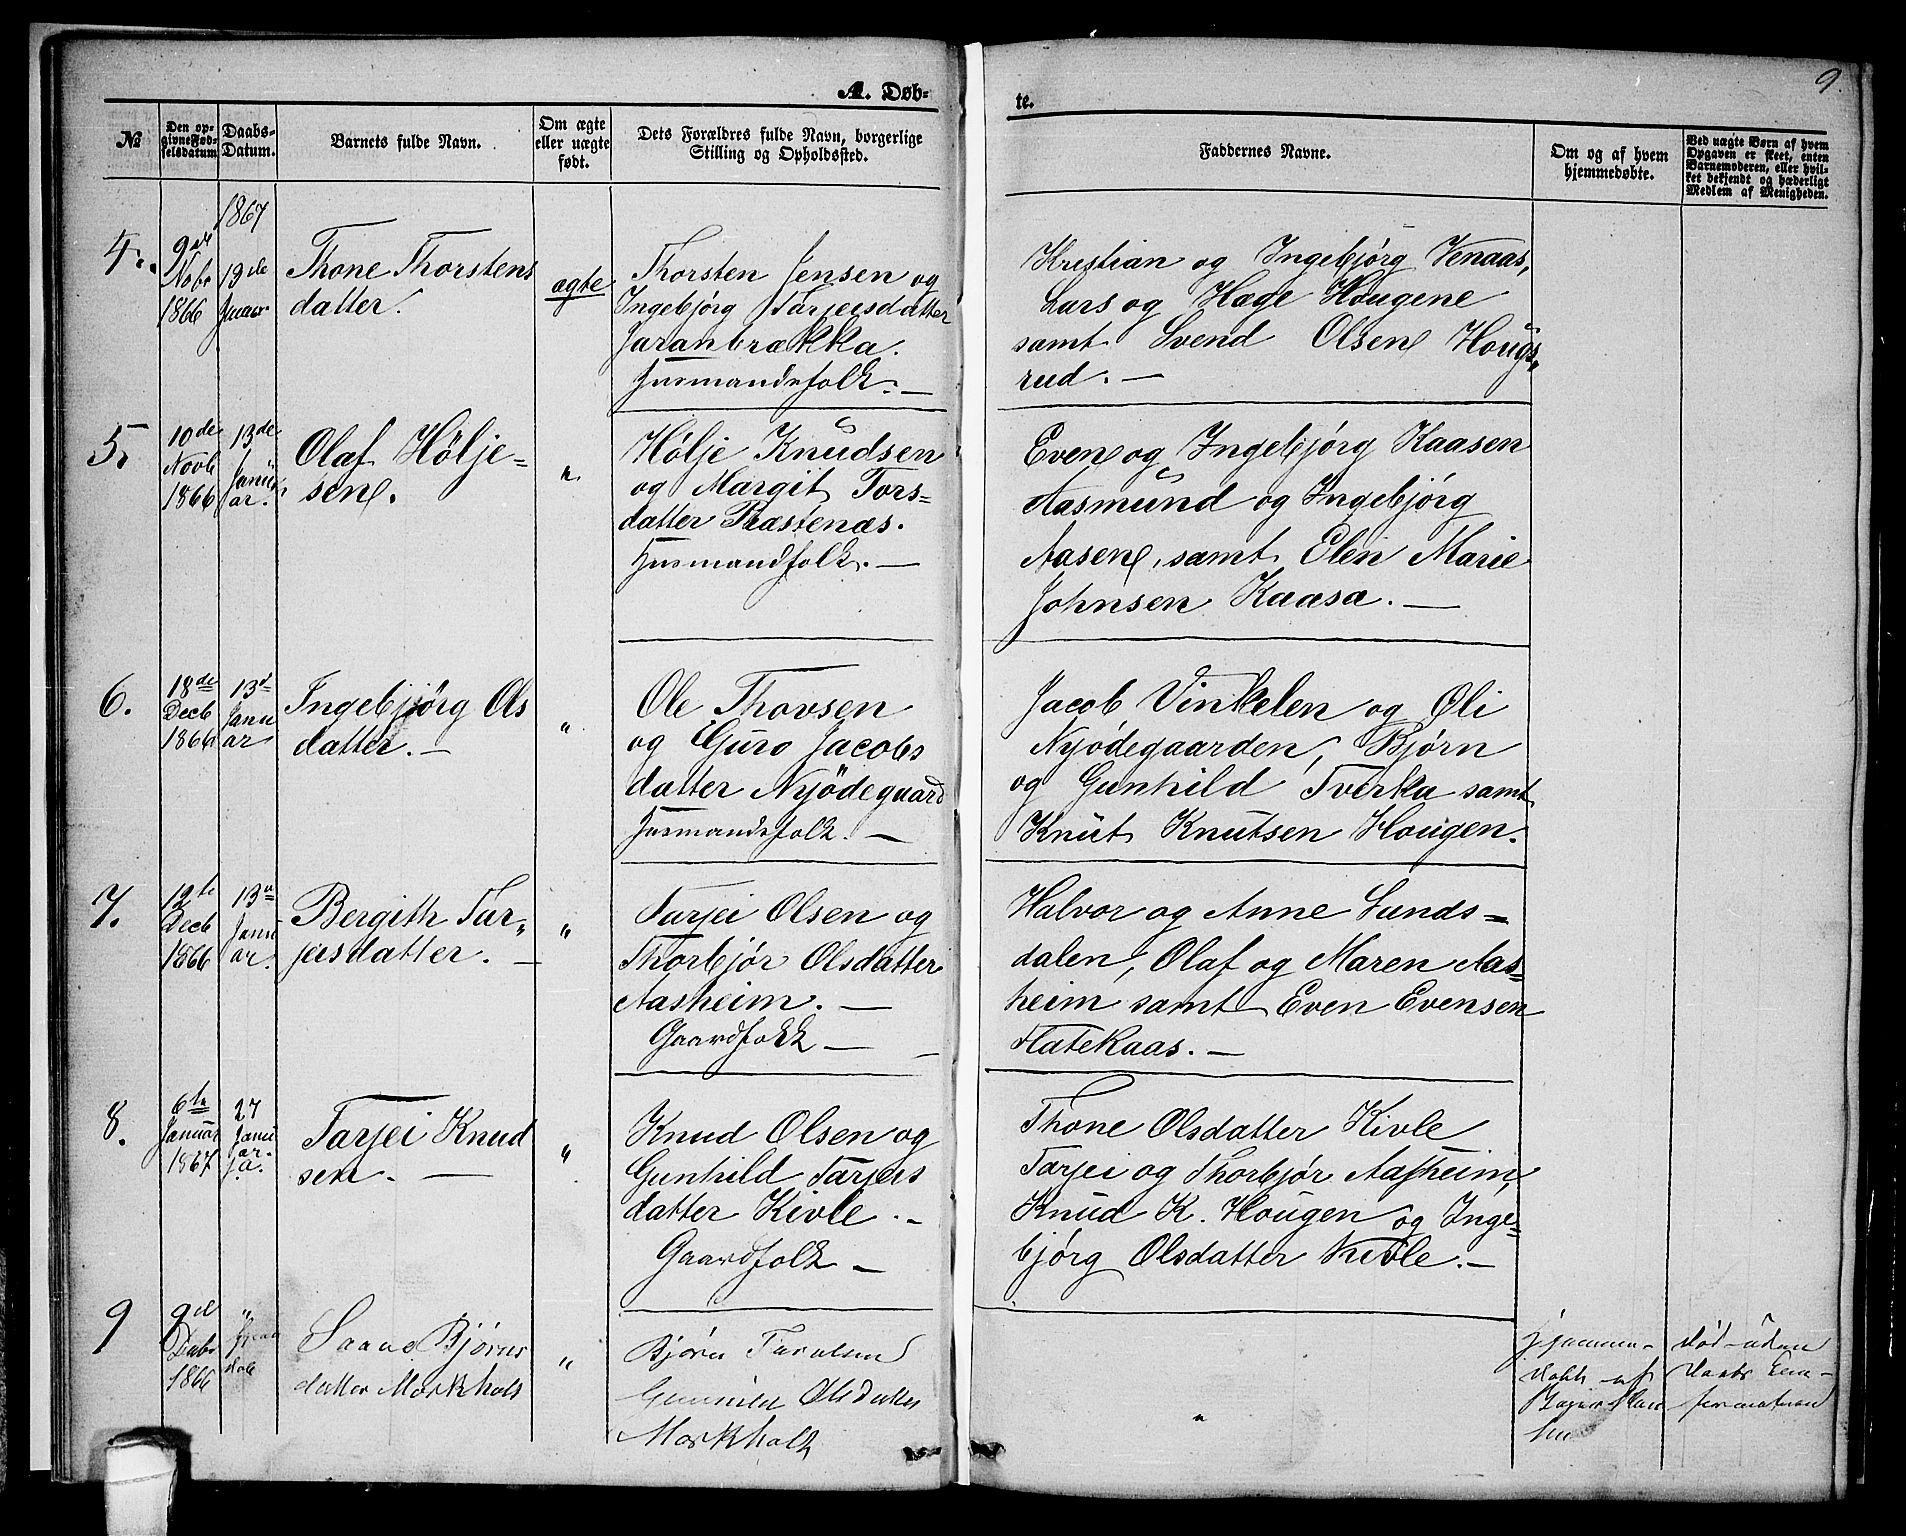 9.
A. Døb-
te.
№
Den op-
givne Fød-
selsdatum.
Daabs-
Datum.
Barnets fulde Navn.
Om ægte
eller uægte
født.
Dets Forældres fulde Navn, borgerlige
Stilling og Opholdssted.
Faddernes Navne.
Om og af hvem
hjemmedøbte.
Ved uægte Børn af hvem
Opgaven er skeet, enten
Barnemoderen, eller hvil-
ket bekjendt og hæderligt
Medlem af Menigheden.
1867
4.
9de
Nobr
1866
19de
Januar
Thone Thorstens
datter.
ægte
Thorsten Jensen og
Ingebjörg Tarjeisdatter
Jaranbrækka.
Husmandsfolk. —
Kristian og Ingebjörg Venaas,
Lars og Hæge Hougene
samt Svend Olsen Hougs-
rud. —
5.
10de
Novb
1866
13de
Janu
ar.
Olaf Hölje-
sen.
"
Hölje Knudsen
og Margit Tors-
datter Præstenæs.
Husmandfolk. —
Even og Ingebjörg Kaasen
Aasmund og Ingebjörg
Aasen, samt Elen Marie
Johnsen Kaasa. —
6.
18de
Decb
1866
13d
Janu
ar
Ingebjörg Ols
datter. —
"
Ole Thovsen
og Guro Jacobs
datter Nyödegaard
Husmandsfolk. —
Jacob Vinkelen og Øli
Nyödegaarden, Björn
og Gunhild Tverka samt
Knut Knutsen Hougen.
7.
12te
Decb
1866
13de
Janu
ar.
Bergith Tar-
jeisdatter. —
"
Tarjei Olsen og
Thorbjör Olsdatter
Aasheim. —
Gaardfolk —
Halvor og Anne Sunds-
dalen, Olaf og Maren Aas-
heim samt Even Evensen
Flatekaas. —
8.
6te
Januar
1867
27
Janu
ar.
Tarjei Knud
sen. —
"
Knud Olsen og
Gunhild Tarjeis
datter Kivle. —
Gaardfolk —
Thone Olsdatter Kivle
Tarjei og Thorbjör Aasheim,
Knud K. Hougen og Inge-
björg Olsdatter Kivle. —
9
9de
1866
"
Björns
datter Morkholt
"
Björn
Olsdatter
Morkholt
"
Hjemme-
døbt af
død uden
Daabs Con-
firmation